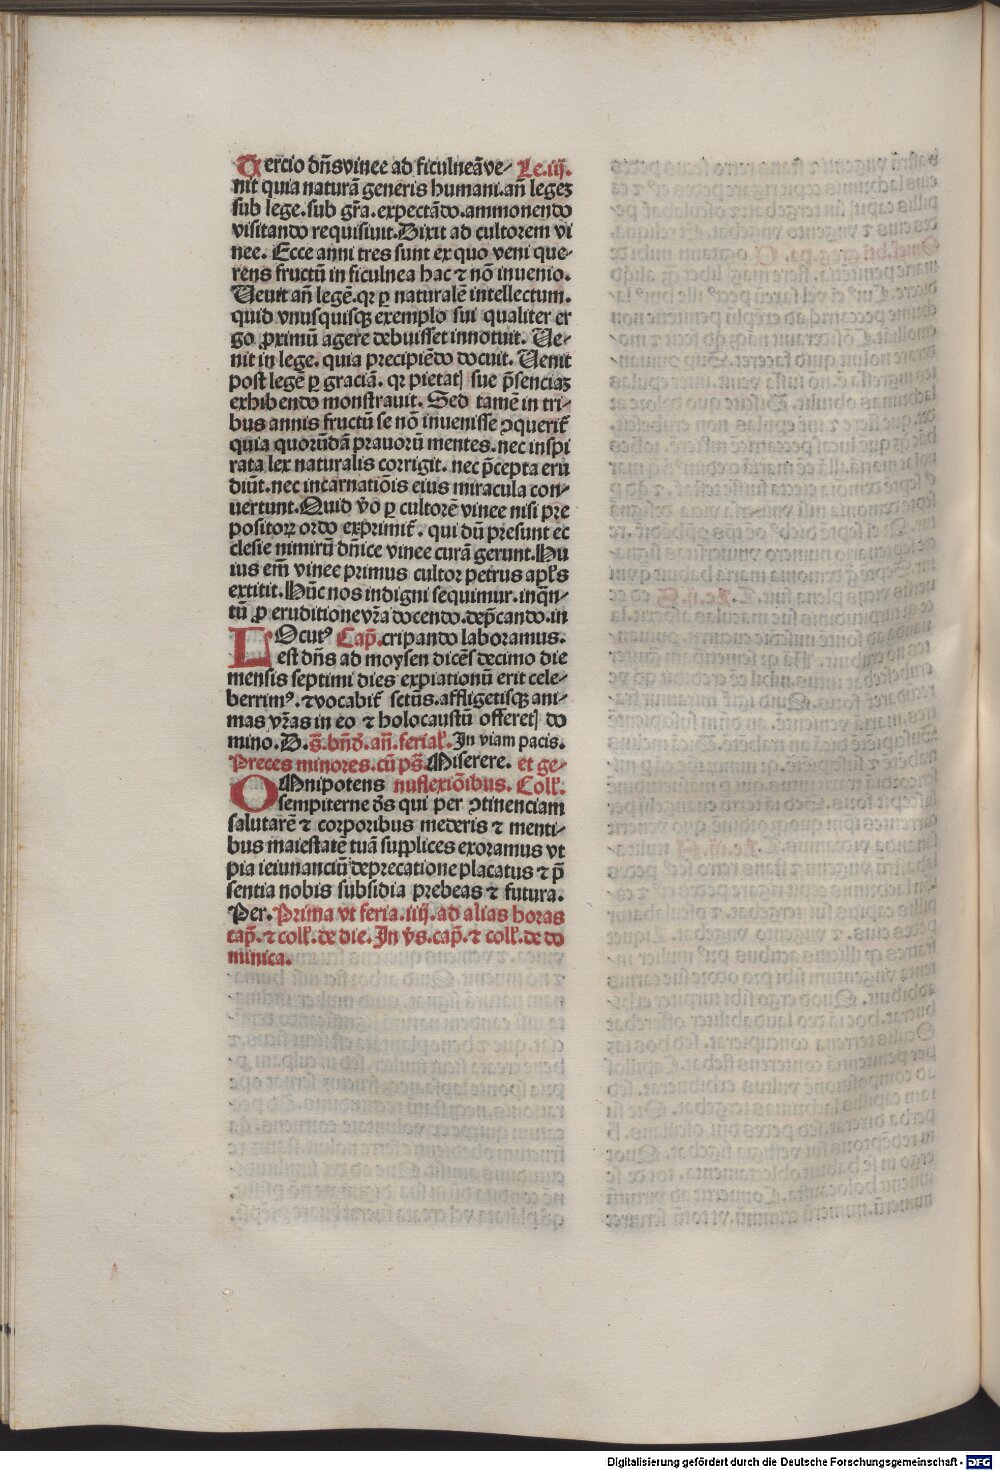 Tercio dn̄s vinee ad ficulneā ve⸗ Le.iij.
nit quia naturā generis humani. an̄ legeȝ
sub lege. sub gr̄a. expectādo. ammonendo
visitando requisiuit. Dixit ad cultorem vi
nee. Ecce anni tres sunt ex quo veni que⸗
rens fructū in ficulnea hac ⁊ nō inuenio.
Venit an̄ legē. qꝛ ꝑ naturalē intellectum.
quid vnusquisqꝫ exemplo sui qualiter er
go ꝓximū agere debuisset innotuit. Ve⸗
nit in lege. quia precipiēdo docuit. Venit
post legē ꝑ graciā. qꝛ pietatꝭ sue p̄senciaȝ
exhibendo monstrauit. Sed tamē in tri⸗
bus annis fructū se nō inuenisse ꝯquerit᷑
quia quorūdā prauorū mentes. nec inspi
rata lex naturalis corrigit. nec p̄cepta eru
diūt. nec incarnatiōis eius miracula con⸗
uertunt. Quid v̄o ꝑ cultorē vinee nisi pre
positoꝝ ordo exprimit᷑. qui dū presunt ec
clesie nimirū dn̄ice vinee curā gerunt. Hu
ius em̄ vinee primus cultor petrus apl̄s
extitit. Hūc nos indigni sequimur. inqn̄⸗
tū ꝓ eruditione vr̄a docendo. dep̄cando. in
LOcutꝰ Cap̄. cripando laboramus.
est dn̄s ad moysen dicēs decimo die
mensis septimi dies expiationū erit cele⸗
berrimꝰ. ⁊ vocabit᷑ sctūs. affligetisqꝫ ani⸗
mas vr̄as in eo ⁊ holocaustū offeretꝭ do
mino. D. s̄. bn̄d̄. an̄. ferial᷑. In viam pacis.
Preces minores. cū ps̄. Miserere. et ge⸗
OMnipotens nuflexiōibus. Coll᷑.
sempiterne d̄s qui per ꝯtinenciam
salutarē ⁊ corporibus mederis ⁊ menti⸗
bus maiestatē tuā supplices exoramus vt
pia ieiunanciū deprecatione placatus ⁊ p̄
sentia nobis subsidia prebeas ⁊ futura.
Per. Prima vt feria. iiij. ad alias horas
cap̄. ⁊ coll᷑. de die. In v̄s. cap̄. ⁊ coll᷑. de do
minica.
Digitalisierung gefördert durch die Deutsche Forschungsgemeinschaft - DFG